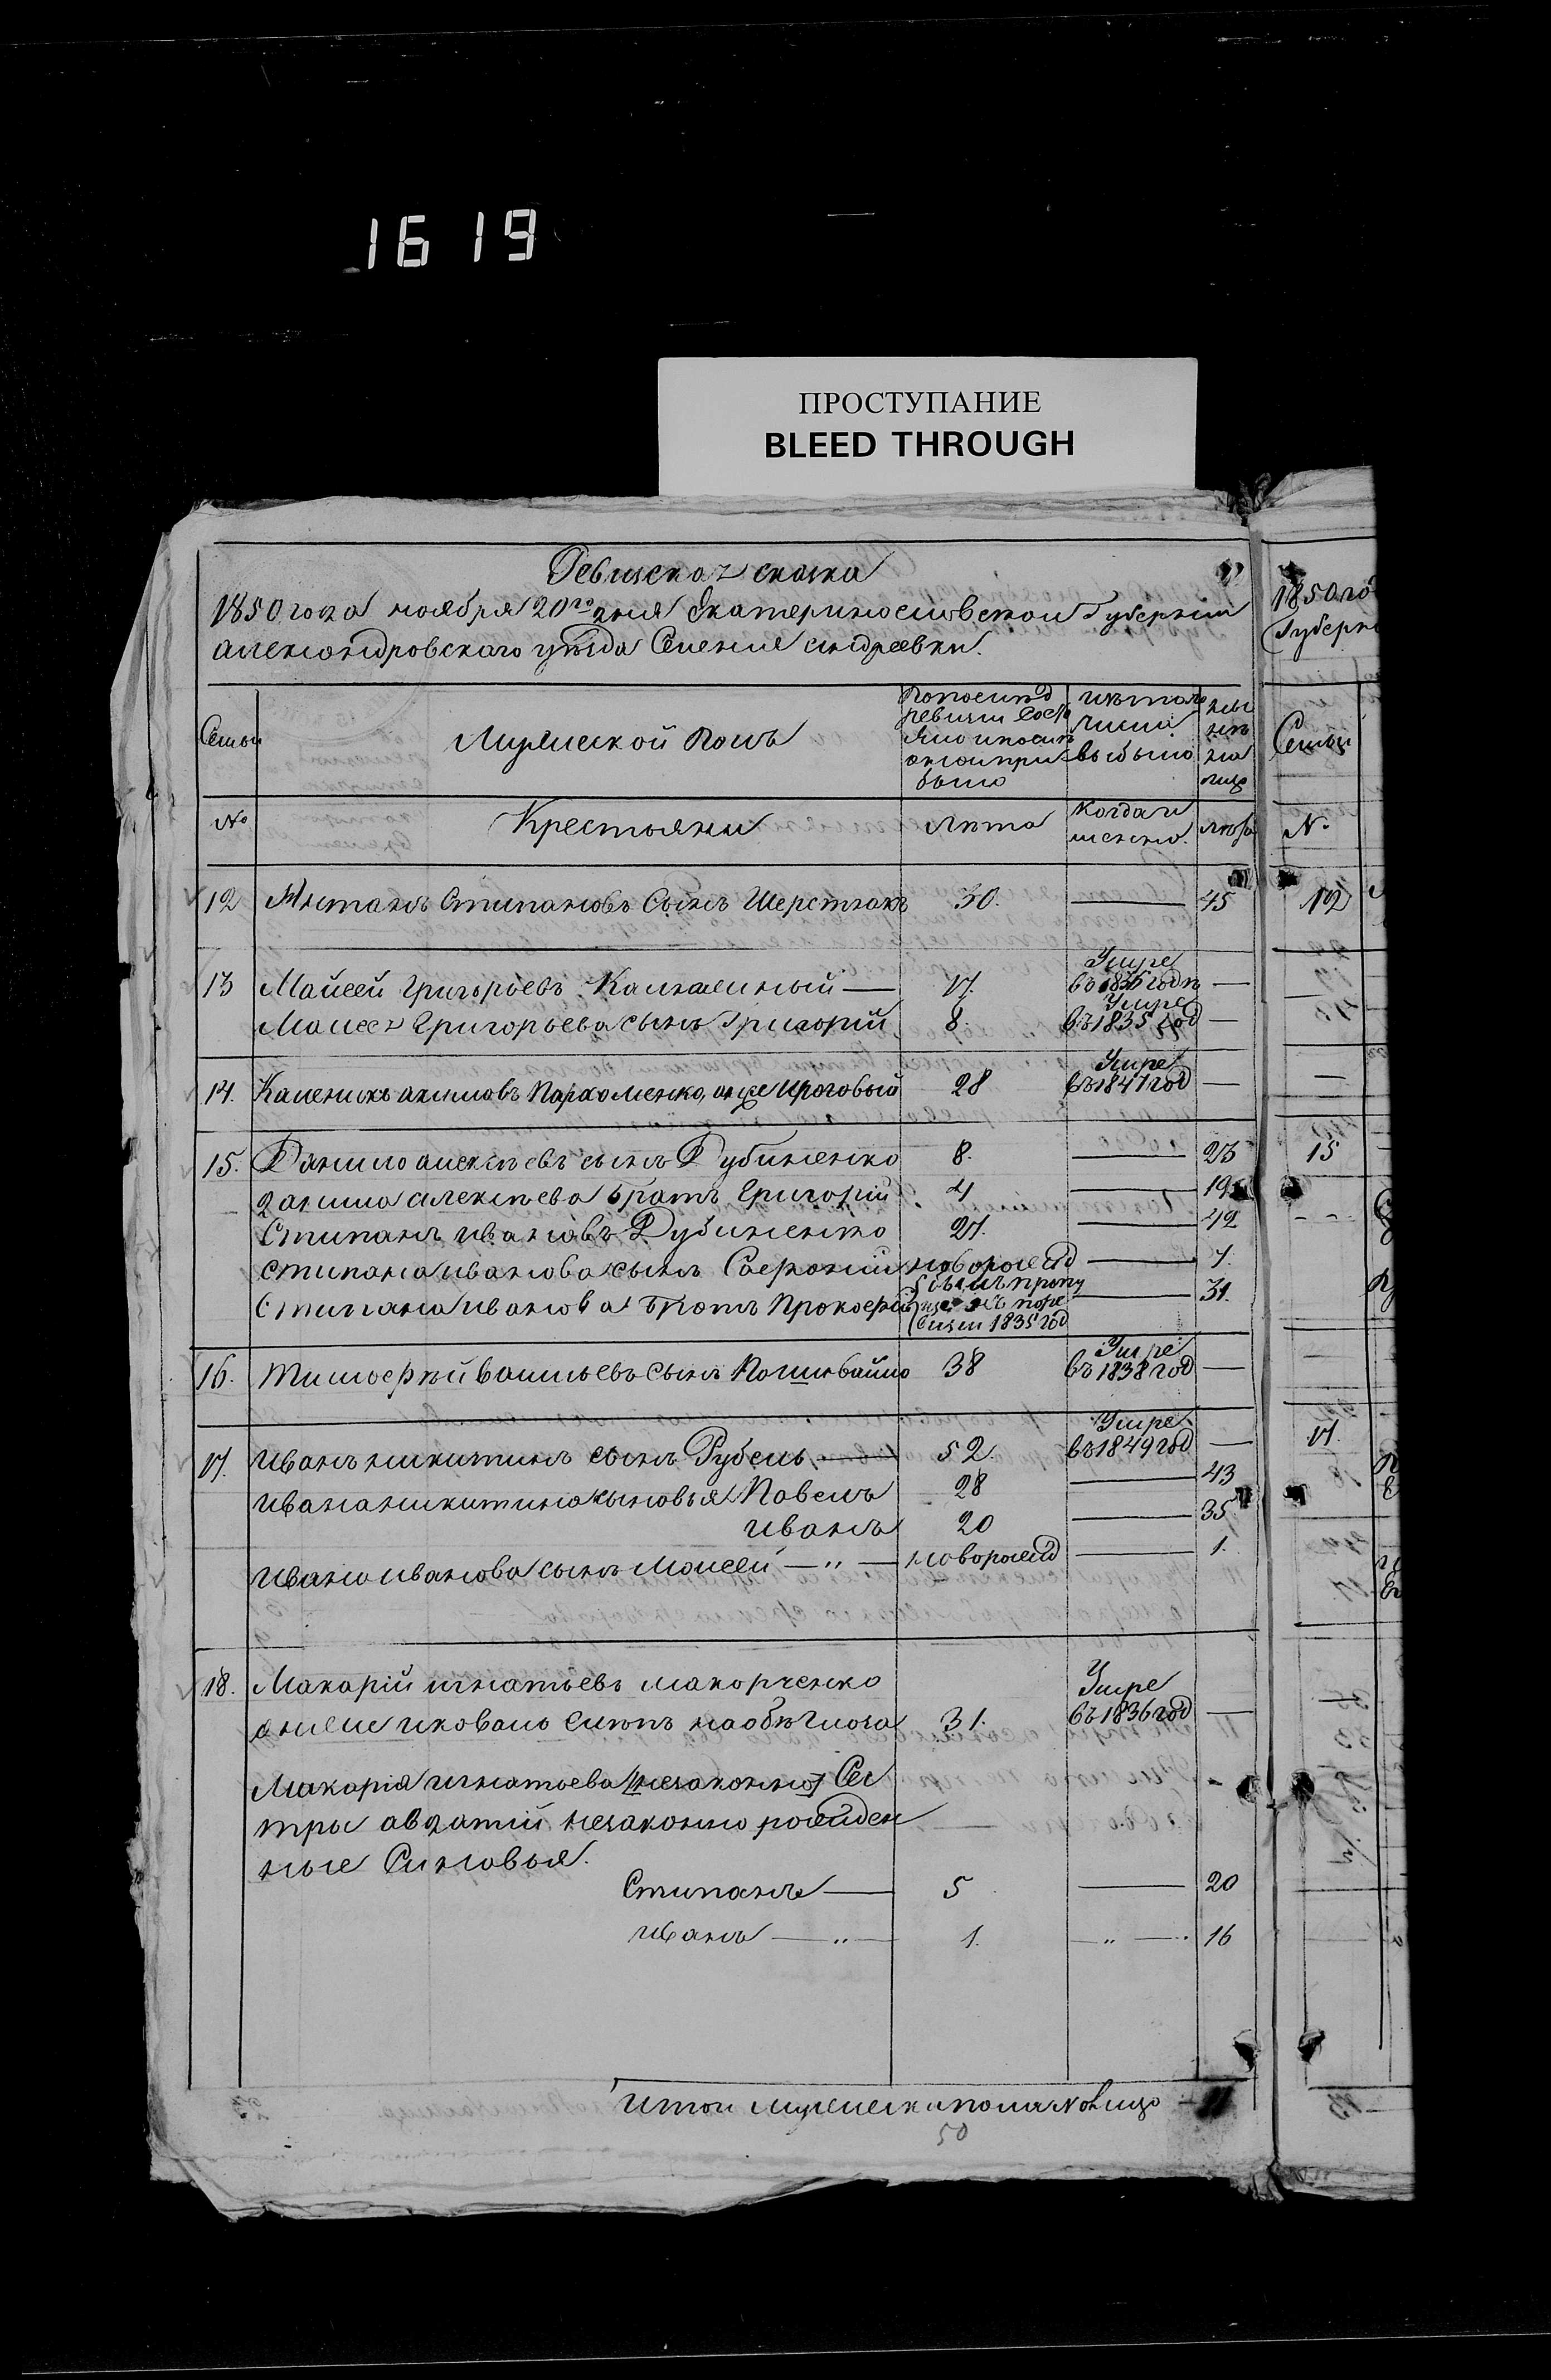 1619
ПРОСТУПАНИЕ
BLEED THROUGH
Ревиская сказка
1850 года ноября 20го дня Екатеринославской Губернии
александровского уезда Селения андреевки.
1850 го
Губерн
Семьи
Мужеской Полъ
По последней ревизии состояло и после оной прибыло
Изъ того числа выбыло
ныне на лицо
Семьи
№
Крестьяне
Лета
Когда именно.
лета
№
12 Степановъ Сынъ Шерстнюкъ 30. 45
12
13 Мойсей Григорьевъ 17. Умре въ 1836 годе
Моисея Григорьева сынъ Григорий 8. Умре въ 1835 год
14. Каленикъ акимовъ Пархоменко, 28 Умре въ 1847 год
15. Данило алексеевъ сынъ Дубиненко 8. 23
15
данила алексеева братъ Григорій 4 19
Стипанъ ивановъ Дубиненко 27. 42
стипана иванова сынъ новорожед 7.
Стипана иванова Братъ Прокофий былъ пропущенъ по ревизии 1835 год 31.
16. Тимофей васильевъ сынъ Пошивайло 38 Умре въ 1838 год
17. Иванъ никитинъ сынъ Рубель 52. Умре въ 1849 год
17.
Ивана никитина сыновья Павелъ 28 43
Иванъ 20 35
Ивана иванова сынъ Моисей — „ — новорожед 1.
18. Макарій игнатьевъ макорченко
31. Умре въ 1836 год
Макария игнатьева незаконно Сес
тры авдатий незаконно рожйден
ные Синовья.
Стипанъ 5 20
Иванъ — „ — 1. 16
Итои мужеска пола налицо 11
50